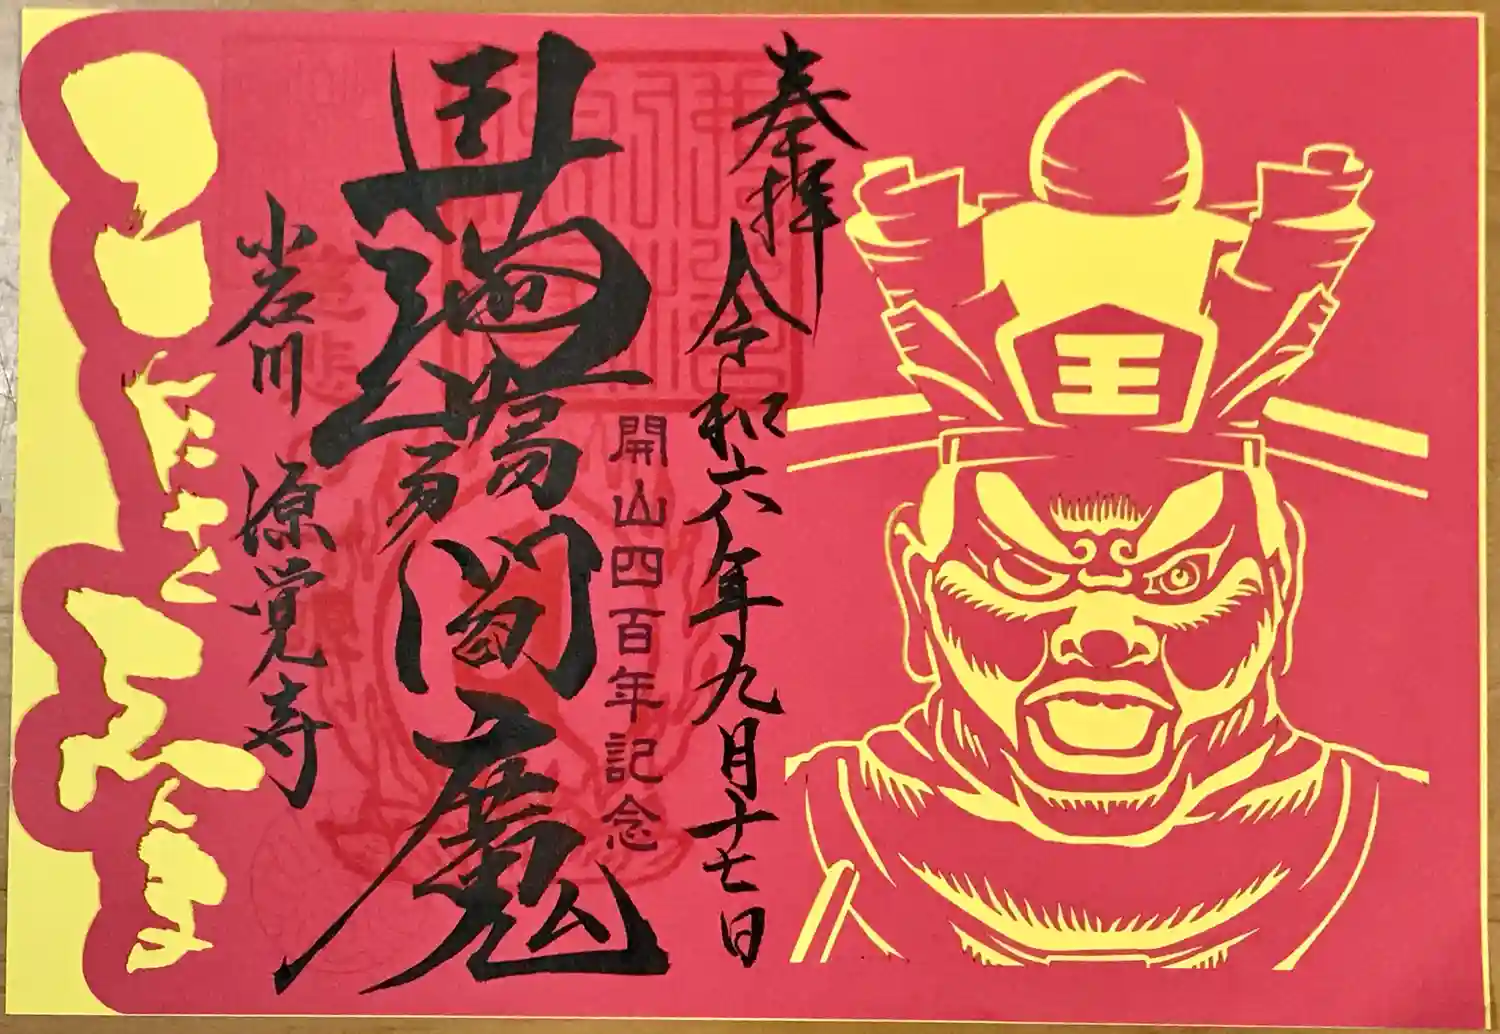 王
奉拝
令和六年九月十七日
開山四百年記念
閻魔
小石川
源覚寺
こんにゃくえんま